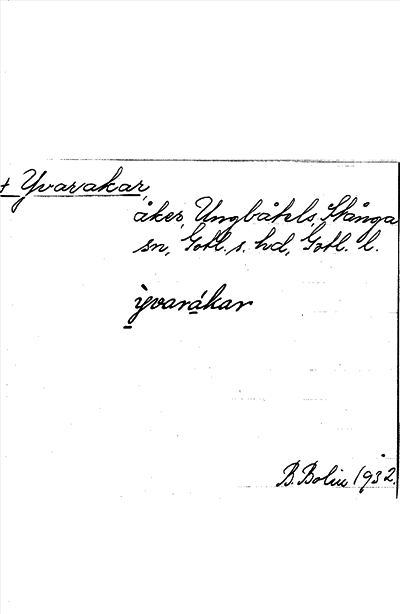 + Yvarakar
åker, Ungbåtels, Stånga
sn, Gotl. s. hd, Gotl. l.
ỳvarákar
B. Bolin 1932.